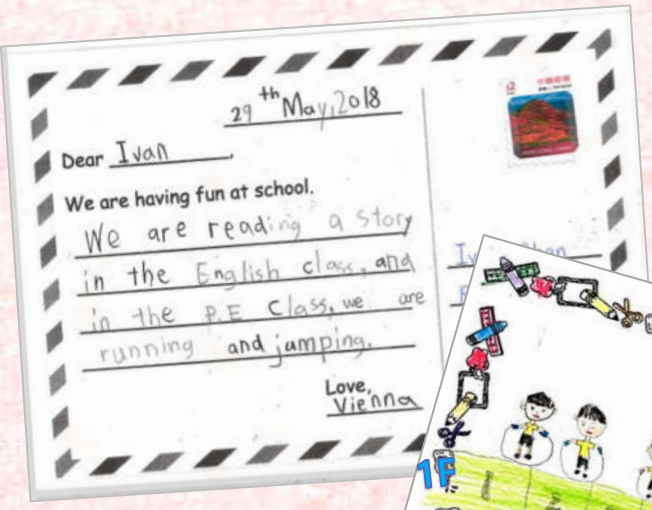 29th May, 2018
Dear Ivan,
We are having fun at school.
We are reading a story
in the English class, and
in the P.E class, we are
running and jumping.
Love,
Vienna
中國香港
HONG KONG, CHINA
Iv
1F
1
2